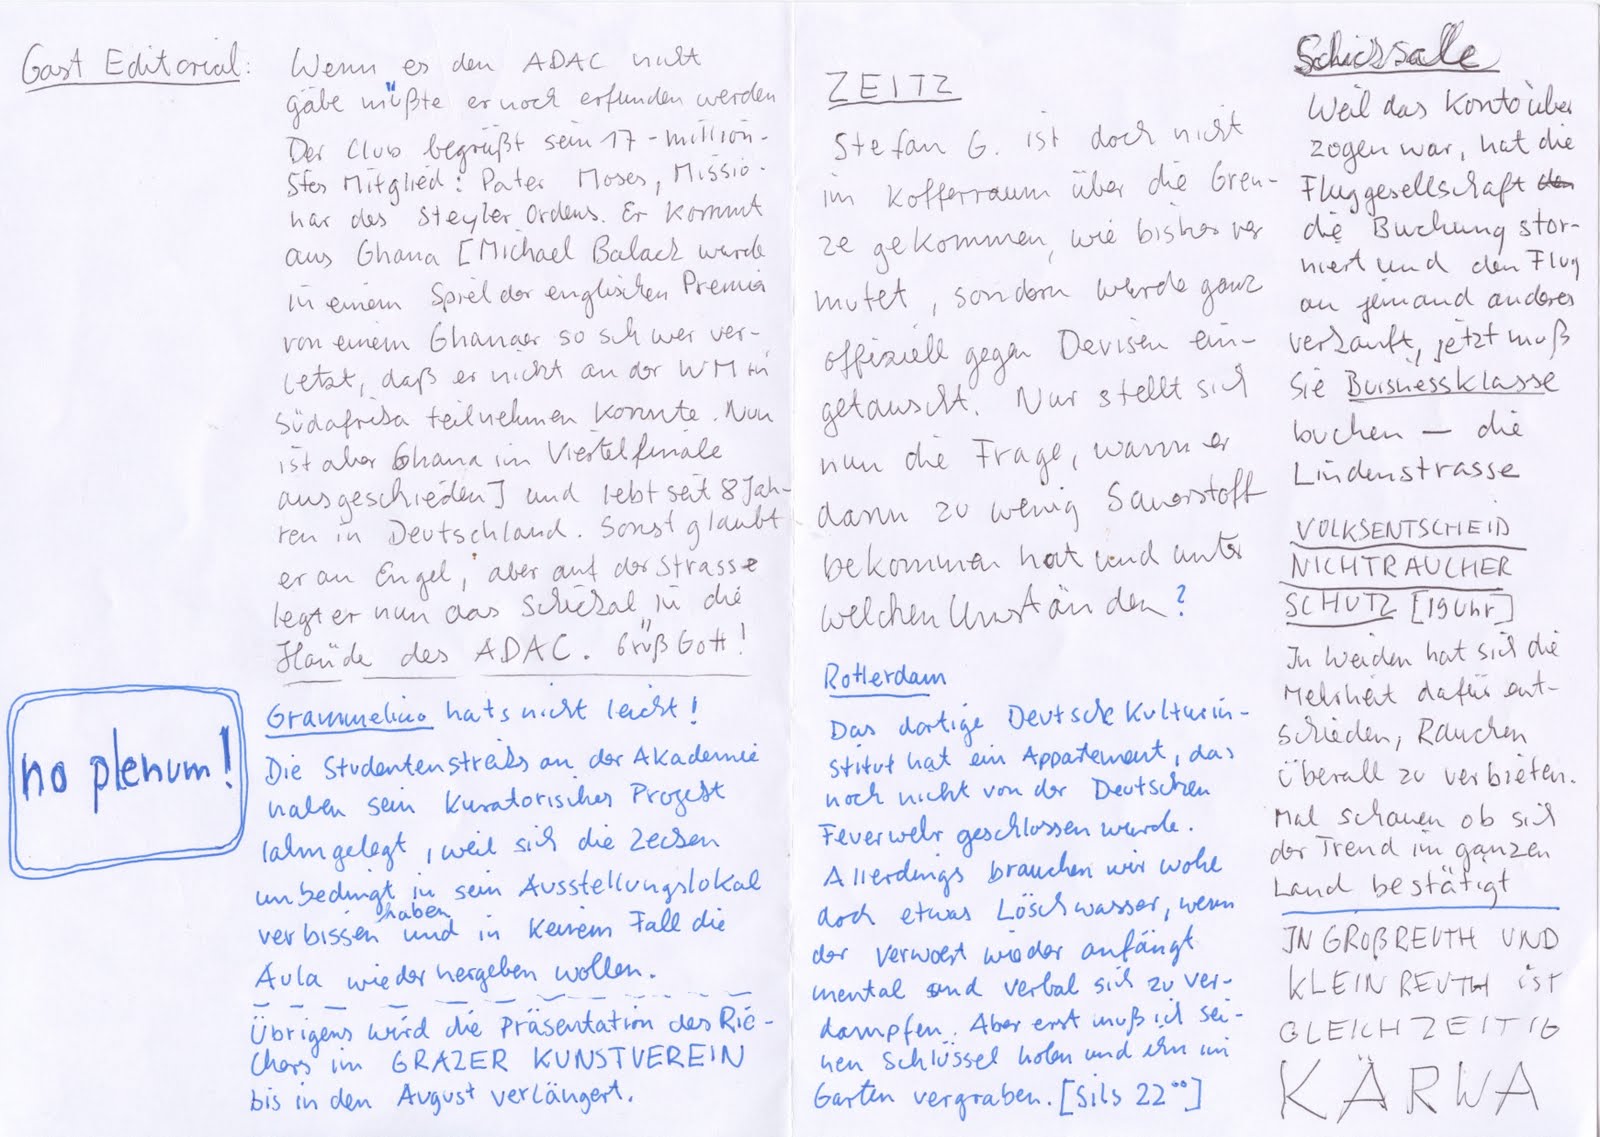 Gast Editorial:
Wenn es den ADAC nicht
gäbe müßte er noch erfunden werden
Der Club begrüßt sein 17-million-
stes Mitglied: Pater Moses, Missio-
nar des Steyler Ordens. Er kommt
aus Ghana [Michael Balack wurde
in einem Spiel der englischen Premier
von einem Ghanaer so schwer ver-
letzt, daß er nicht an der WM in
Südafrika teilnehmen konnte. Nun
ist aber Ghana im Viertelfinale
ausgeschieden] und lebt seit 8 Jah-
ren in Deutschland. Sonst glaubt
er an Engel, aber auf der Strasse
legt er nun das Schicksal in die
Hände des ADAC. Grüß Gott!
no plenum!
Grammelino hats nicht leicht!
Die Studentenstreiks an der Akademie
haben sein kuratorisches Projekt
lahmgelegt, weil sich die Zecken
unbedingt in sein Ausstellungslokal
verbissen haben und in keinem Fall die
Aula wieder hergeben wollen.
Übrigens wird die Präsentation des Rie-
chers im GRAZER KUNSTVEREIN
bis in den August verlängert.
ZEITZ
Stefan G. ist doch nicht
im Kofferraum über die Gren-
ze gekommen, wie bisher ver
mutet, sondern wurde ganz
offiziell gegen Devisen ein-
getauscht. Nur stellt sich
nun die Frage, wann er
dann zu wenig Sauerstoff
bekommen hat und unter
welchen Umständen?
Rotterdam
Das dortige Deutsche Kulturin-
stitut hat ein Appartement, das
noch nicht von der Deutschen
Feuerwehr geschlossen wurde.
Allerdings brauchen wir wohl
doch etwas Löschwasser, wenn
der Verwoert wieder anfängt
mental und verbal sich zu ver-
dampfen. Aber erst muß ich sei-
nen Schlüssel holen und ihn im
Garten vergraben. [Sils 22°°]
Schicksalle
Weil das Konto über
zogen war, hat die
Fluggesellschaft den
die Buchung stor-
niert und den Flug
an jemand anderes
verkauft, jetzt muß
sie Buisnessklasse
buchen — die
Lindenstrasse
VOLKSENTSCHEID
NICHTRAUCHER
SCHUTZ [19 Uhr]
In Weiden hat sich die
Mehrheit dafür ent-
schieden, Rauchen
überall zu verbieten.
Mal schauen ob sich
der Trend im ganzen
Land bestätigt
IN GROßREUTH UND
KLEINREUTH IST
GLEICHZEITIG
KÄRWA